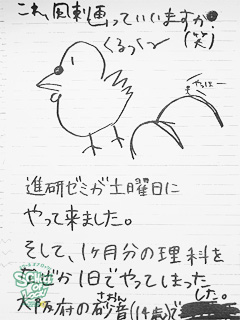 これ、風刺画っていいますか?
(笑)
くるっくー
やっほー
進研ゼミが土曜日に
やって来ました。
そして、1ヶ月分の理科を
なぜか1日でやってしまった
さおん
大阪府の砂音(14歳)でした。